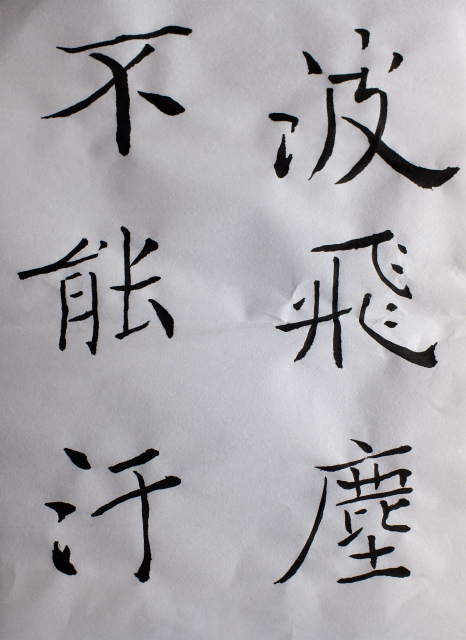 波飛塵
不能汙